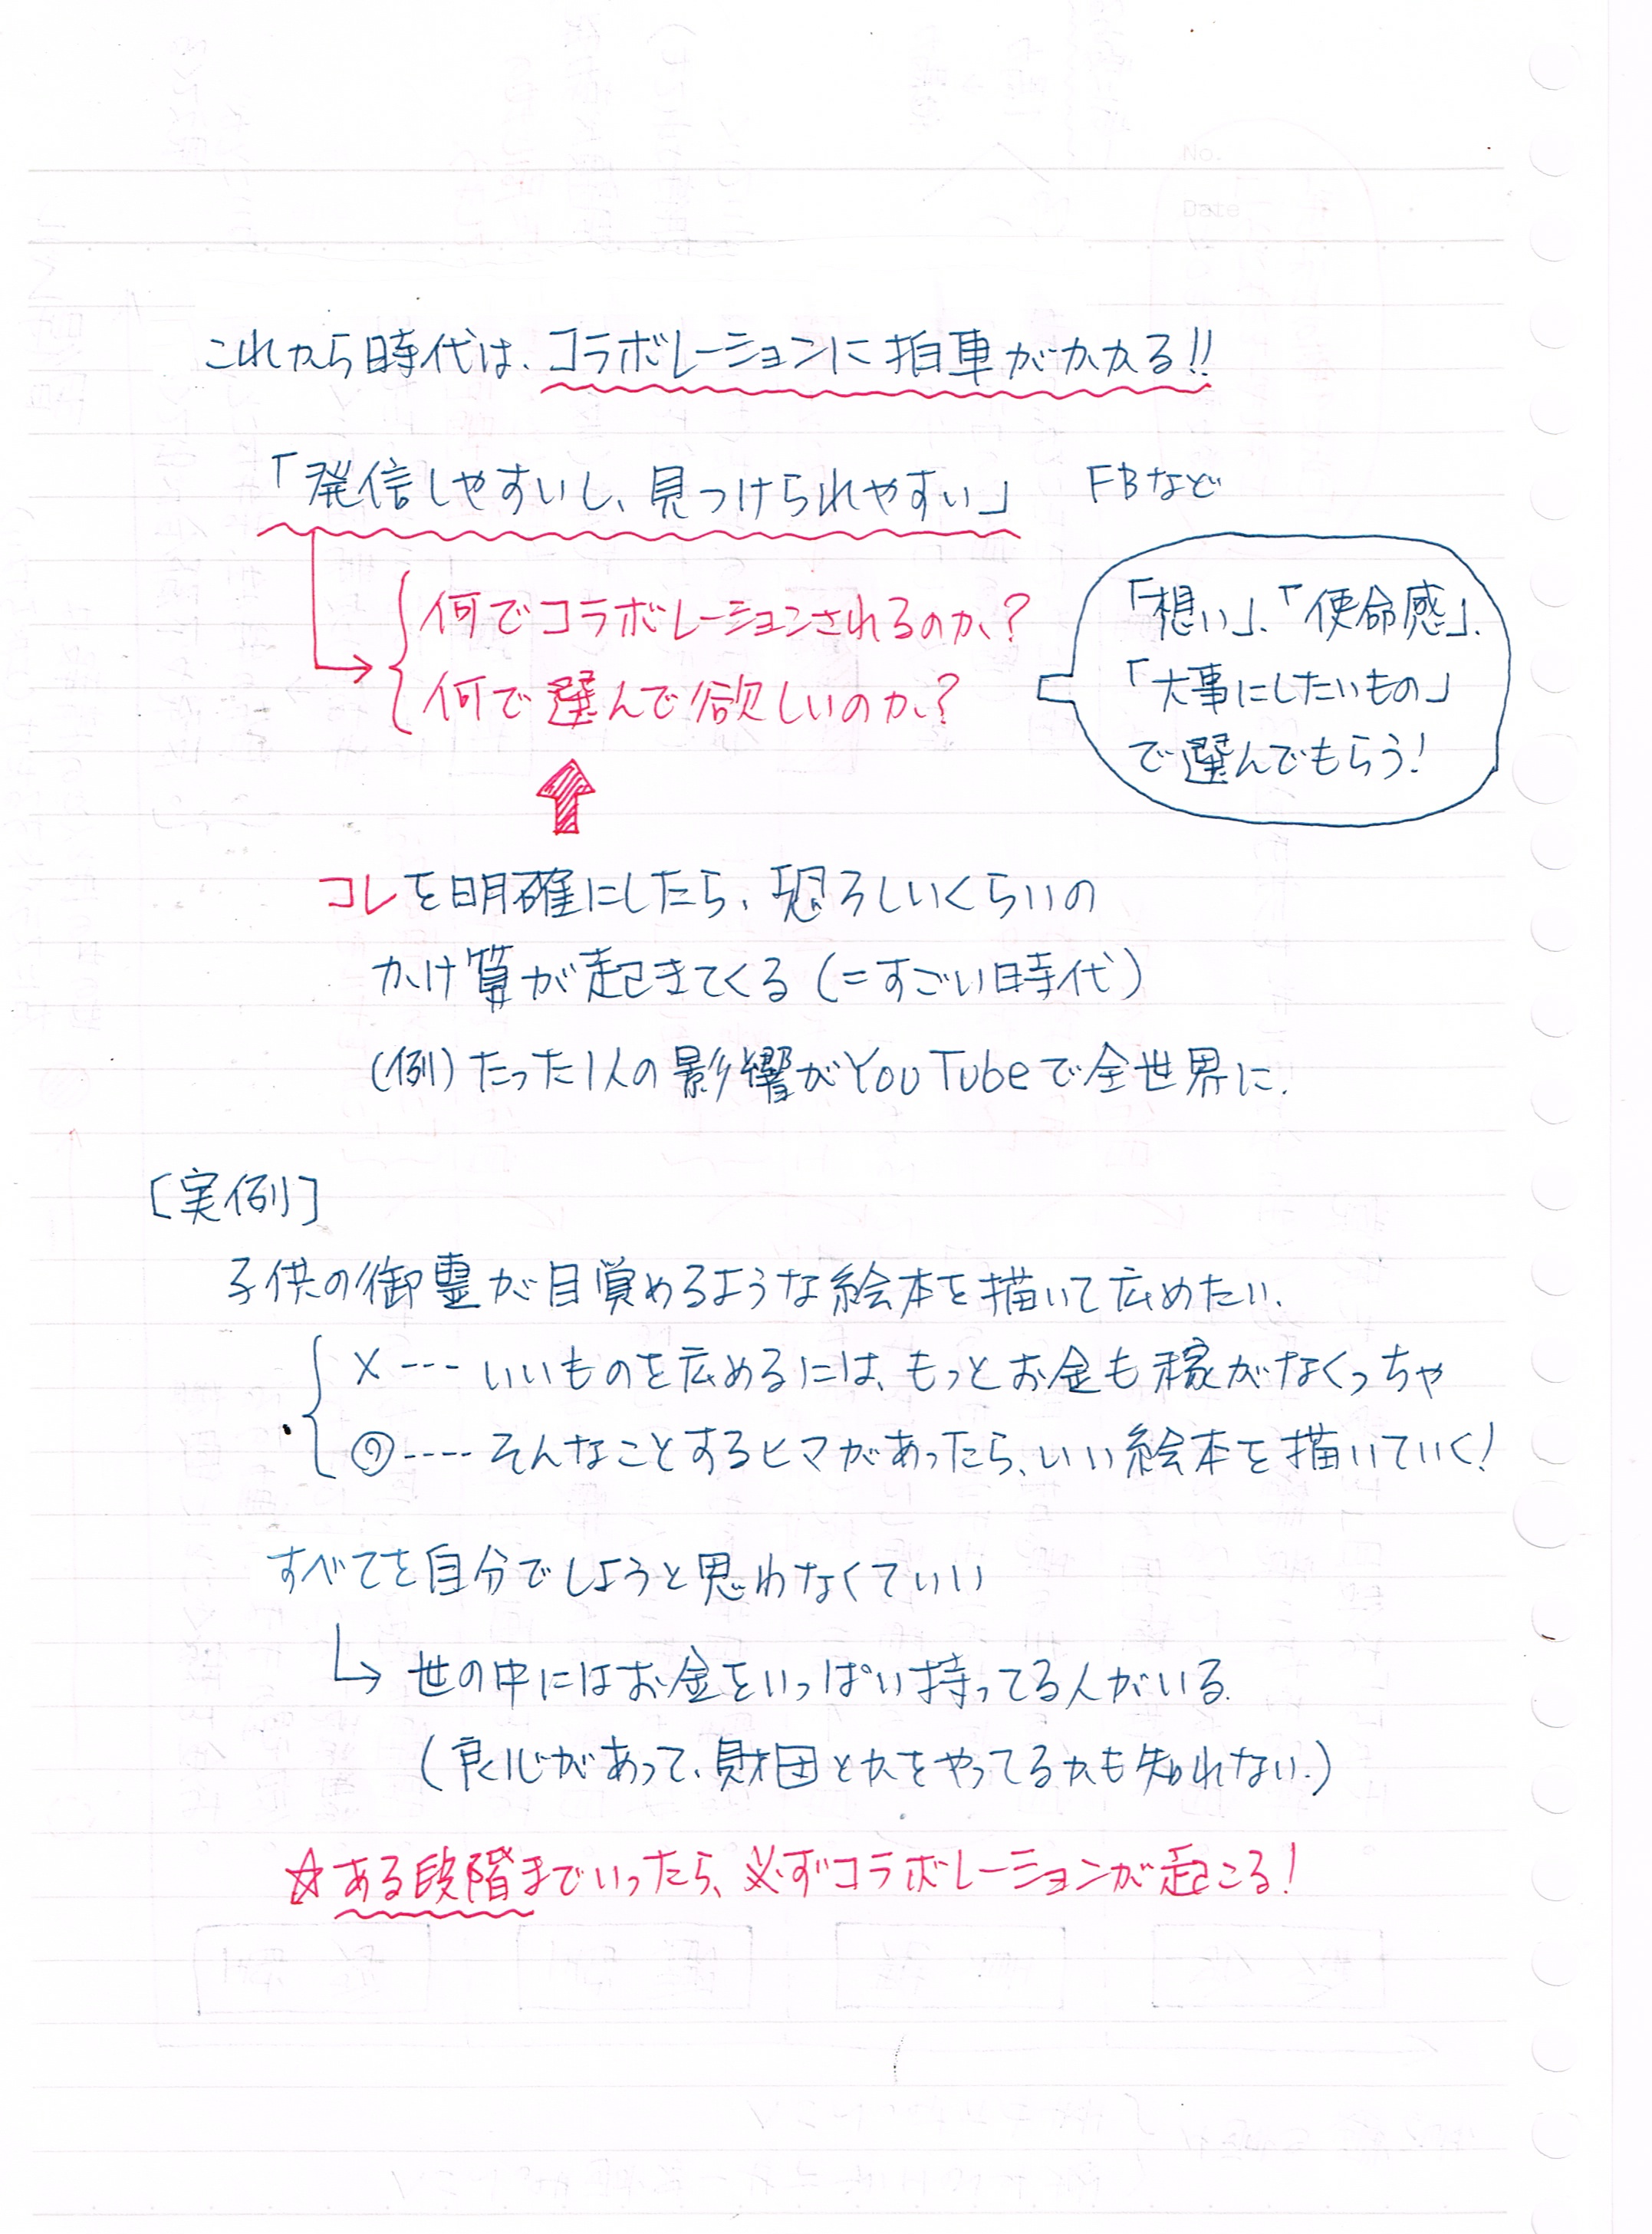 No.
Date
これから時代は、コラボレーションに拍車がかかる!!
「発信しやすいし、見つけられやすい」 FBなど
何でコラボレーションされるのか?
何で選んで欲しいのか?
「想い」、「使命感」、
「大事にしたいもの」
で選んでもらう!
コレを明確にしたら、恐ろしいくらいの
かけ算が起きてくる(=すごい時代)
(例)たった1人の影響がYouTubeで全世界に.
[実例]
子供の御霊が目覚めるような絵本を描いて広めたい.
× --- いいものを広めるには、もっとお金も稼がなくっちゃ
◎ ---- そんなことするヒマがあったら、いい絵本を描いていく!
すべてを自分でしようと思わなくていい
↳ 世の中にはお金をいっぱい持ってる人がいる.
(良心があって、財団とかをやってるかも知れない.)
☆ある段階までいったら、必ずコラボレーションが起こる!